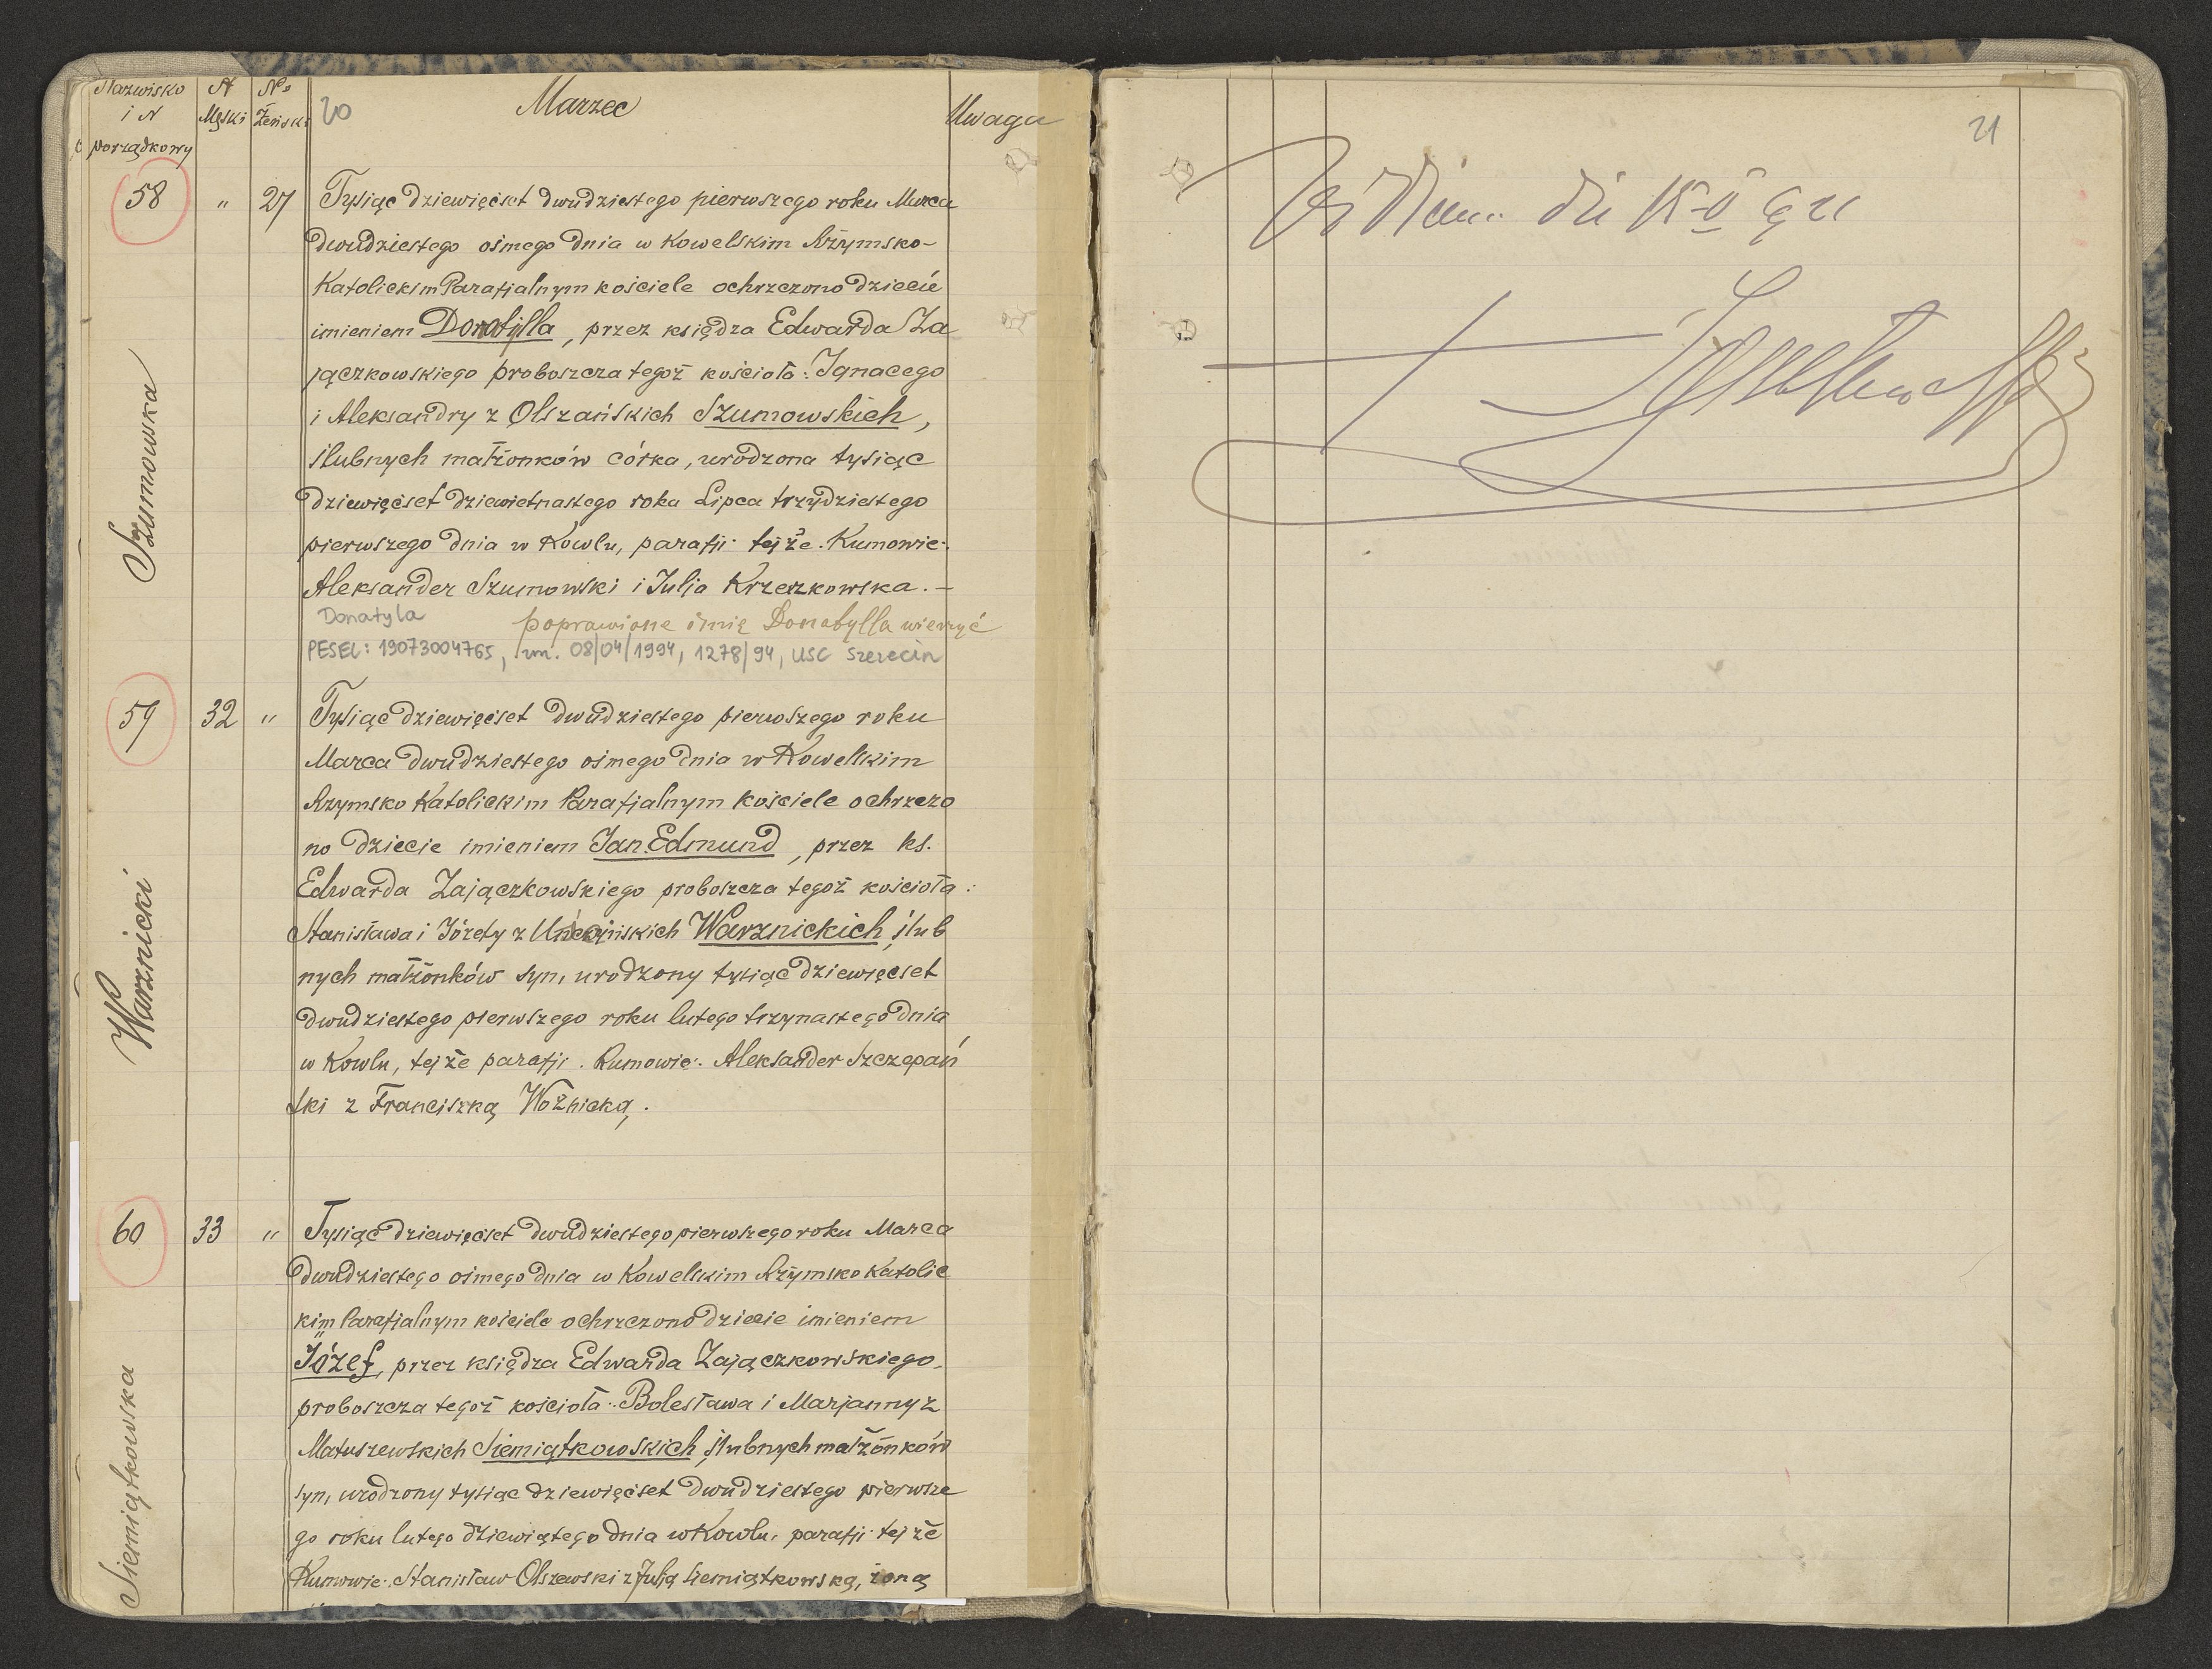 Nazwisko i N porządkowy
N Męski
No Żeński
20
Marzec
Uwaga
58
"
27
Szumowska
Tysiąc dziewięćset dwudziestego pierwszego roku Marca
dwudziestego ósmego dnia w Kowelskim Rzymsko-
Katolickim Parafjalnym kościele ochrzczono dziecię
imieniem Donatylla, przez księdza Edwarda Za
jączkowskiego proboszcza tegoż kościoła: Ignacego
i Aleksandry z Olszańskich Szumowskich,
ślubnych małżonków córka, urodzona tysiąc
dziewięćset dziewietnastego roku Lipca trzydziestego
pierwszego dnia w Kowlu, parafji tejże. Kumowie:
Aleksander Szumowski i Julja Krzeczkowska. —
Donatyla
poprawione imię Donatylla wierzyć
PESEL: 19073004765, zm. 08/04/1994, 1278/94, USC Szczecin
59
32
"
Warznicki
Tysiąc dziewięćset dwudziestego pierwszego roku
Marca dwudziestego ósmego dnia w Kowelskim
Rzymsko Katolickim Parafjalnym kościele ochrzczo
no dziecie imieniem Jan Edmund, przez ks.
Edwarda Zajączkowskiego proboszcza tegoż kościoła:
Stanisława i Józefy z Warznickich ślub
nych małżonków syn, urodzony tysiąc dziewięćset
dwudziestego pierwszego roku lutego trzynastego dnia
w Kowlu, tejże parafji. Kumowie: Aleksander Szczepań
ski z Franciszką Woźnicką.
60
33
"
Siemiątkowska
Tysiąc dziewięćset dwudziestego pierwszego roku Marca
dwudziestego ósmego dnia w Kowelskim Rzymsko Katolic
kim Parafjalnym kościele ochrzczono dziecie imieniem
Józef, przez księdza Edwarda Zajączkowskiego
proboszcza tegoż kościoła: Bolesława i Marjanny z
Matuszewskich Siemiątkowskich ślubnych małżonków
syn, urodzony tysiąc dziewięćset dwudziestego pierwsze
go roku lutego dziewiątego dnia w Kowlu, parafji tejże
Kumowie: Stanisław Olszewski z Julją Siemiątkowską, żoną
21